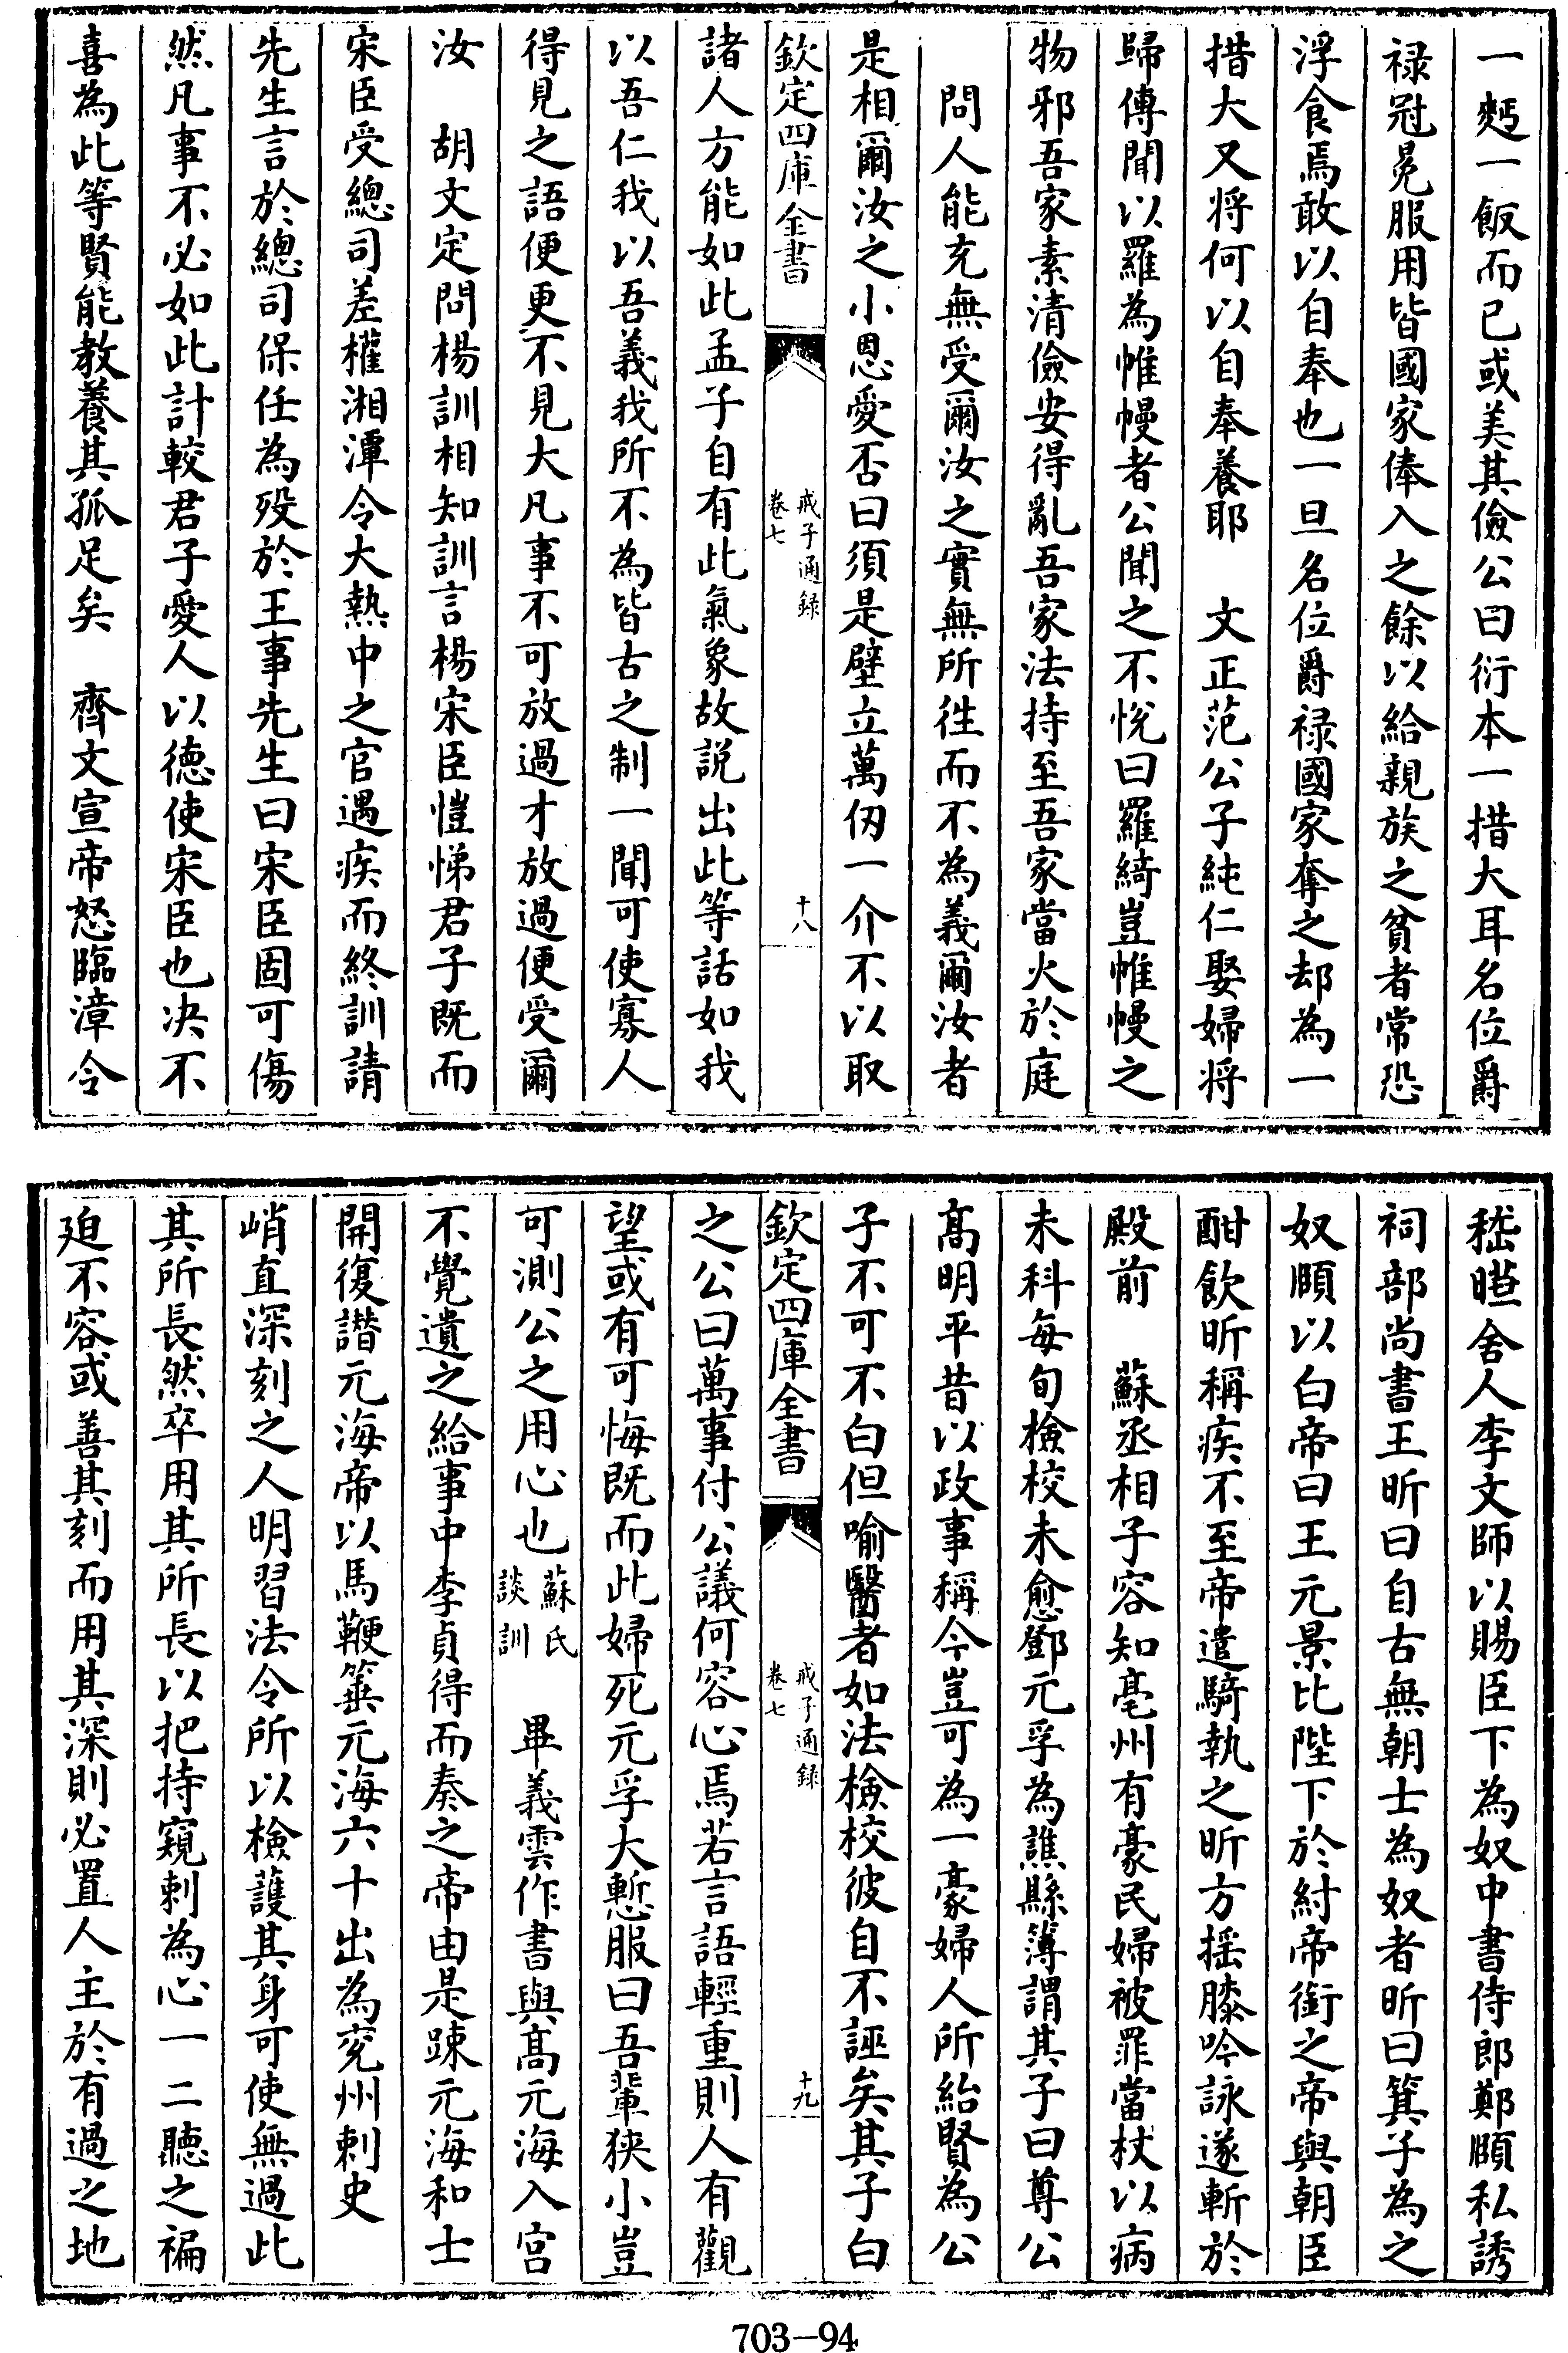 一麫一飯而已或美其儉公曰衍本一措大耳名位爵
禄冠冕服用皆國家俸入之餘以給親族之貧者常恐
浮食焉敢以自奉也一旦名位爵禄國家奪之却為一
措大又将何以自奉養耶　文正范公子純仁娶婦将
歸傳聞以羅為帷幔者公聞之不悅曰羅綺豈帷幔之
物邪吾家素清儉安得亂吾家法持至吾家當火於庭
問人能充無受爾汝之實無所徃而不為義爾汝者
是相爾汝之小恩愛否曰須是壁立萬仭一介不以取
欽定四庫全書
戒子通録
卷七
十八
諸人方能如此孟子自有此氣象故説出此等話如我
以吾仁我以吾義我所不為皆古之制一聞可使寡人
得見之語便更不見大凡事不可放過才放過便受爾
汝　胡文定問楊訓相知訓言楊宋臣愷悌君子既而
宋臣受總司差權湘潭令大熱中之官遇疾而終訓請
先生言於總司保任為歿於王事先生曰宋臣固可傷
然凡事不必如此計較君子愛人以徳使宋臣也决不
喜為此等賢能教養其孤足矣　齊文宣帝怒臨漳令
嵇曄舍人李文師以賜臣下為奴中書侍郎鄭頤私誘
祠部尚書王昕曰自古無朝士為奴者昕曰箕子為之
奴頤以白帝曰王元景比陛下於紂帝銜之帝與朝臣
酣飲昕稱疾不至帝遣騎執之昕方揺膝吟詠遂斬於
殿前　蘇丞相子容知亳州有豪民婦被罪當杖以病
未科每旬檢校未愈鄧元孚為譙縣簿謂其子曰尊公
髙明平昔以政事稱今豈可為一豪婦人所紿賢為公
子不可不白但喻醫者如法檢校彼自不誣矣其子白
欽定四庫全書
戒子通録
卷七
十九
之公曰萬事付公議何容心焉若言語輕重則人有觀
望或有可悔既而此婦死元孚大慙服曰吾輩狹小豈
可測公之用心也蘇氏談訓　畢義雲作書與髙元海入宫
不覺遺之給事中李貞得而奏之帝由是踈元海和士
開復譖元海帝以馬鞭箠元海六十出為兖州刺史
峭直深刻之人明習法令所以檢護其身可使無過此
其所長然卒用其所長以把持窺刺為心一二聽之褊
廹不容或善其刻而用其深則必置人主於有過之地
703-94